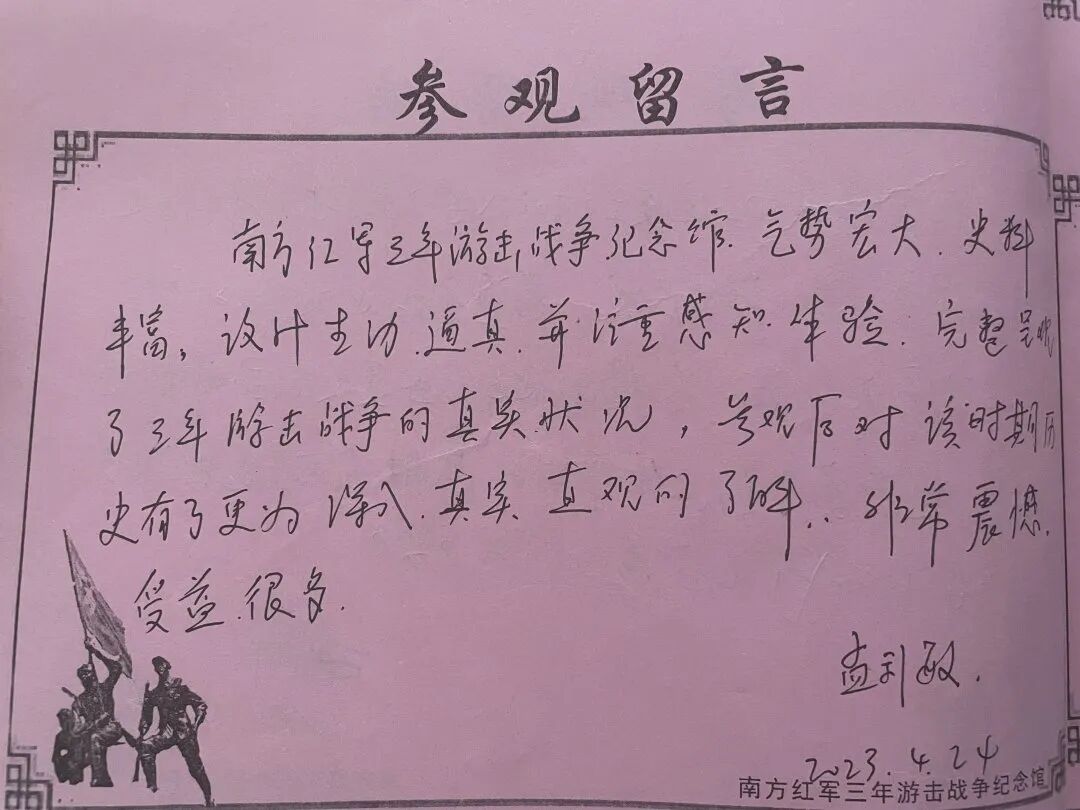 参观留言
南方红军三年游击战争纪念馆.气势宏大.史料
丰富,设计生动.逼真.并注重感知.体验.完整呈现
了三年游击战争的真实状况,参观后对该时期历
史有了更为深入.真实.直观的了解..非常震撼.
受益很多.
孟利敏.
2023.4.24
南方红军三年游击战争纪念馆